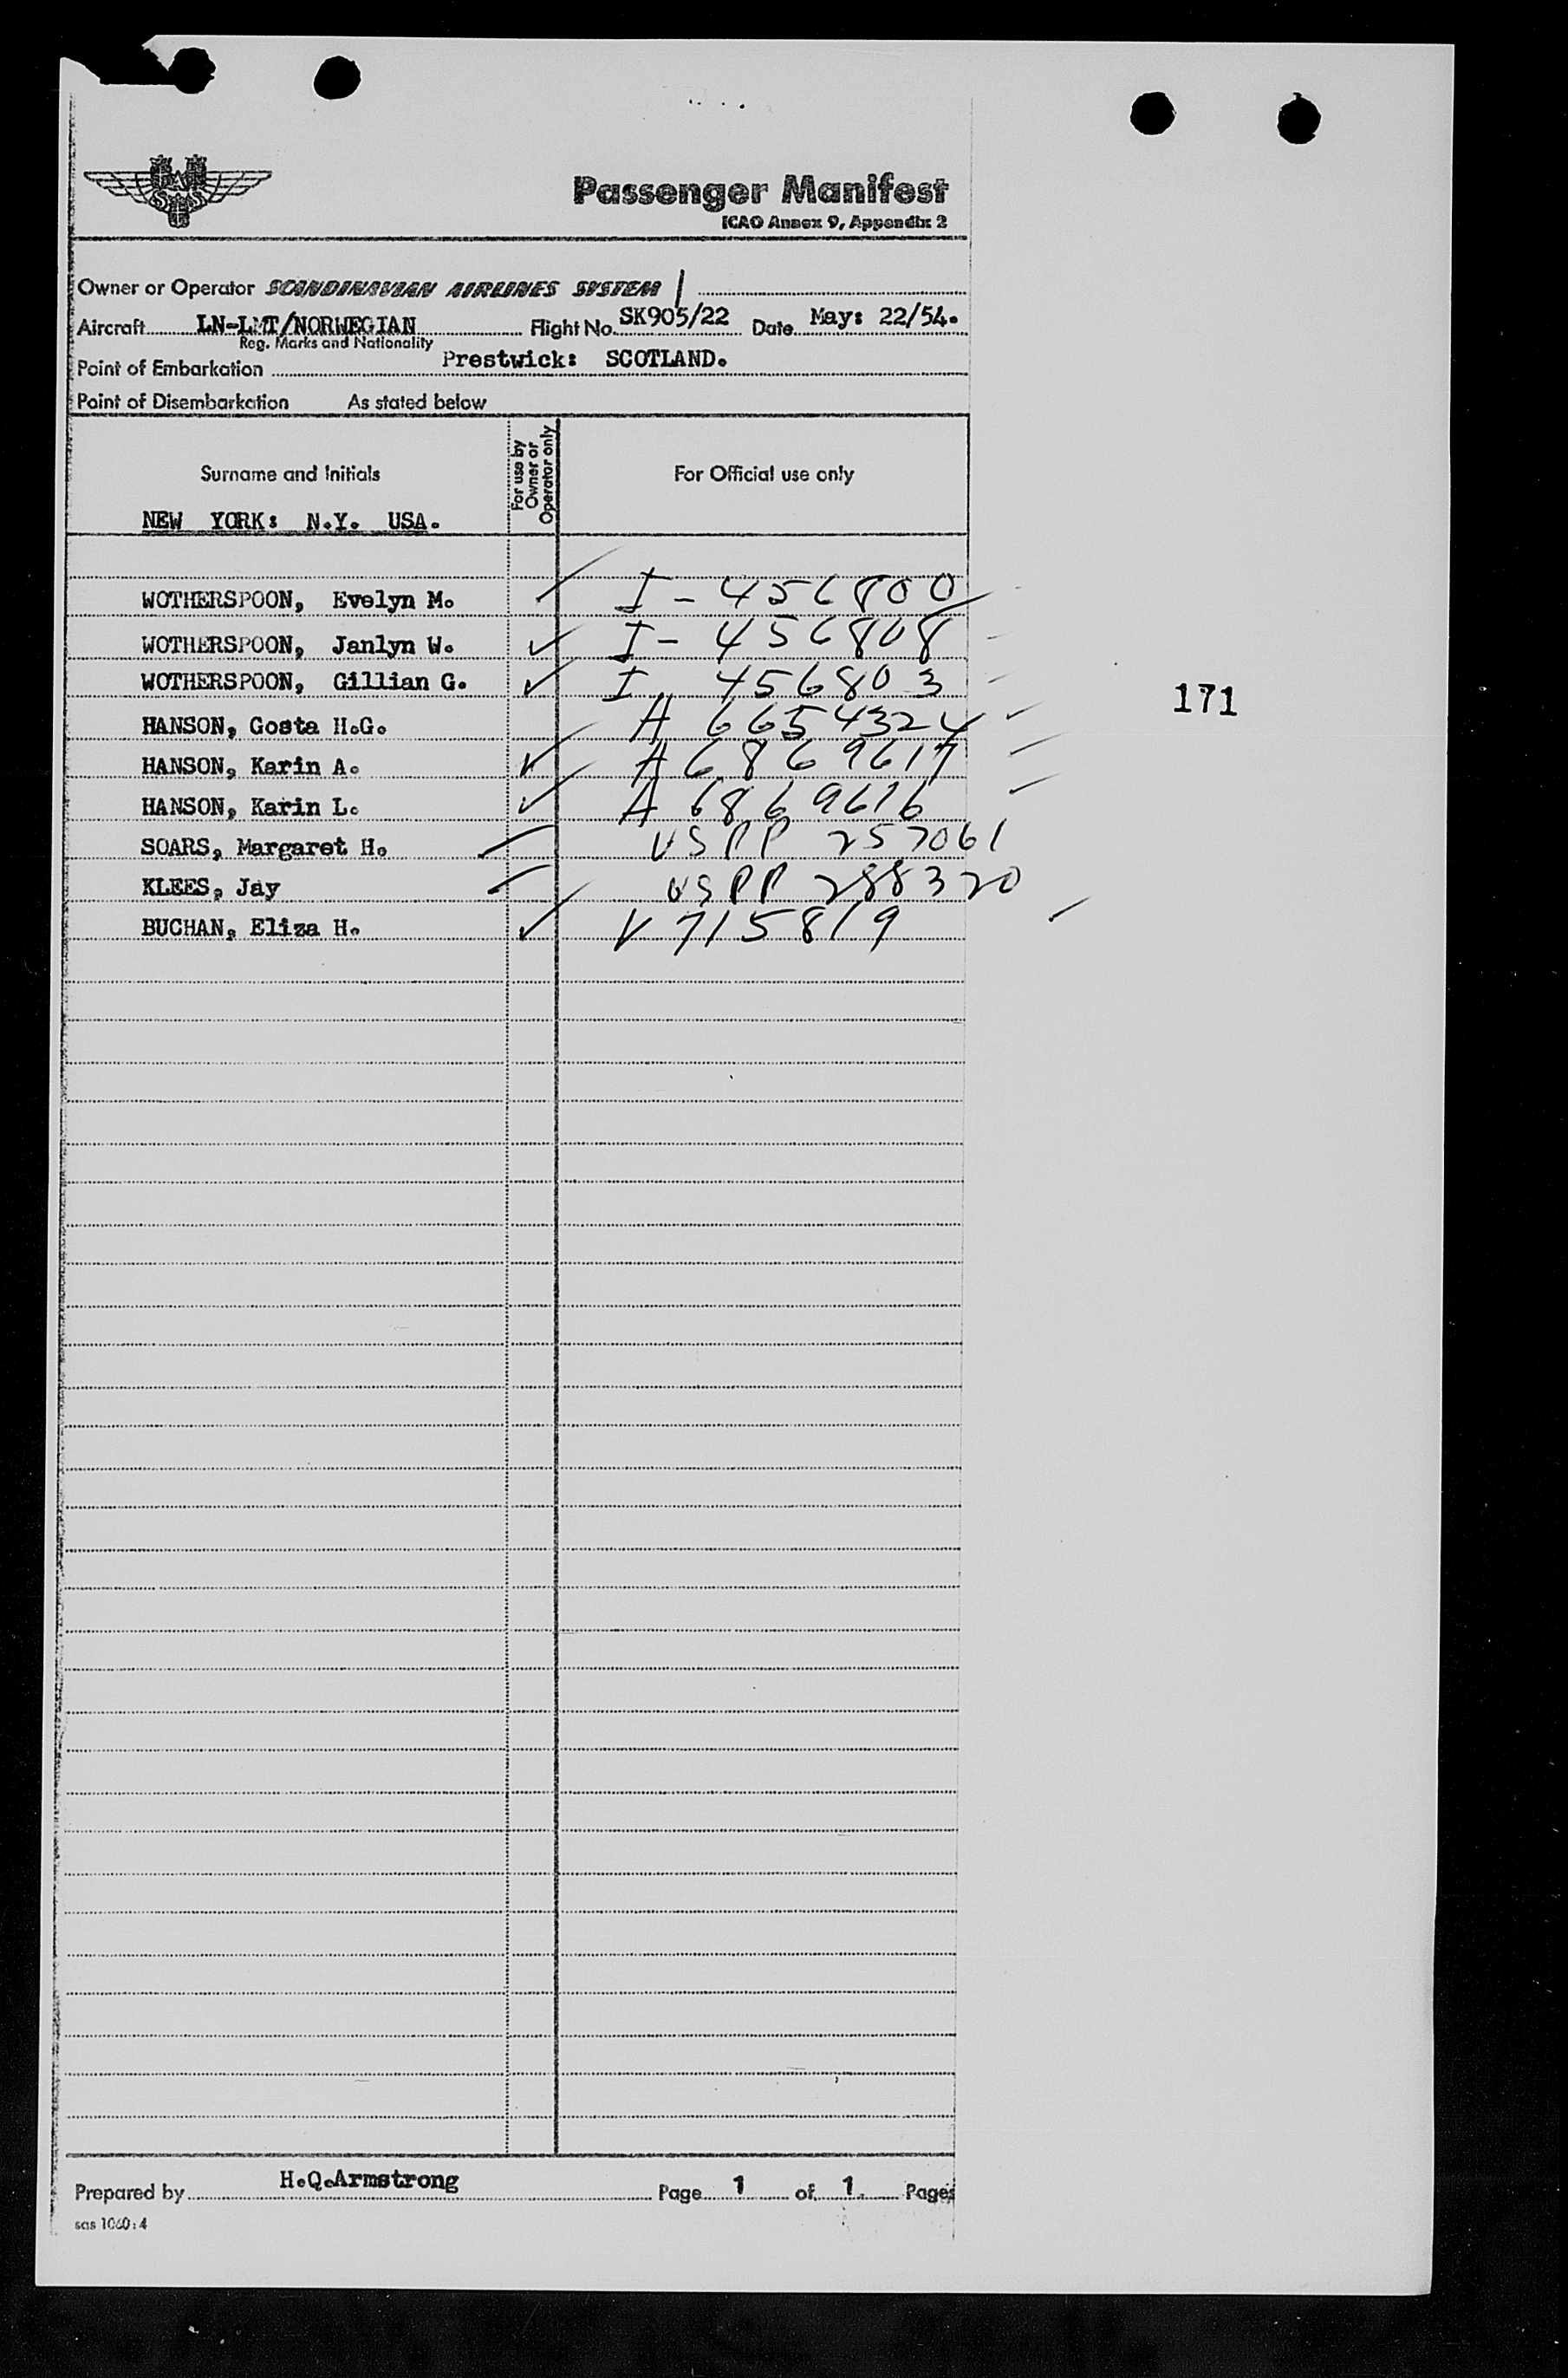 SAS
Passenger Manifest
ICAO Annex 9, Appendix 2
Owner or Operator SCANDINAVIAN AIRLINES SYSTEM
Aircraft LN-LMT/NORWEGIAN Flight No. SK905/22 Date May: 22/54.
Reg. Marks and Nationality
Point of Embarkation Prestwick: SCOTLAND.
Point of Disembarkation As stated below
Surname and Initials For use by Owner or Operator only For Official use only
NEW YORK: N.Y. USA.
WOTHERSPOON, Evelyn M. I - 456800
WOTHERSPOON, Janlyn W. I - 456808
WOTHERSPOON, Gillian G. I 456803
171
HANSON, Gosta H.G. A 6654324
HANSON, Karin A. A 6869617
HANSON, Karin L. A 6869616
SOARS, Margaret H. USPP 257061
KLEES, Jay USPP 288320
BUCHAN, Eliza H. V 715819
Prepared by H.Q.Armstrong Page 1 of 1 Pages
sas 1060:4